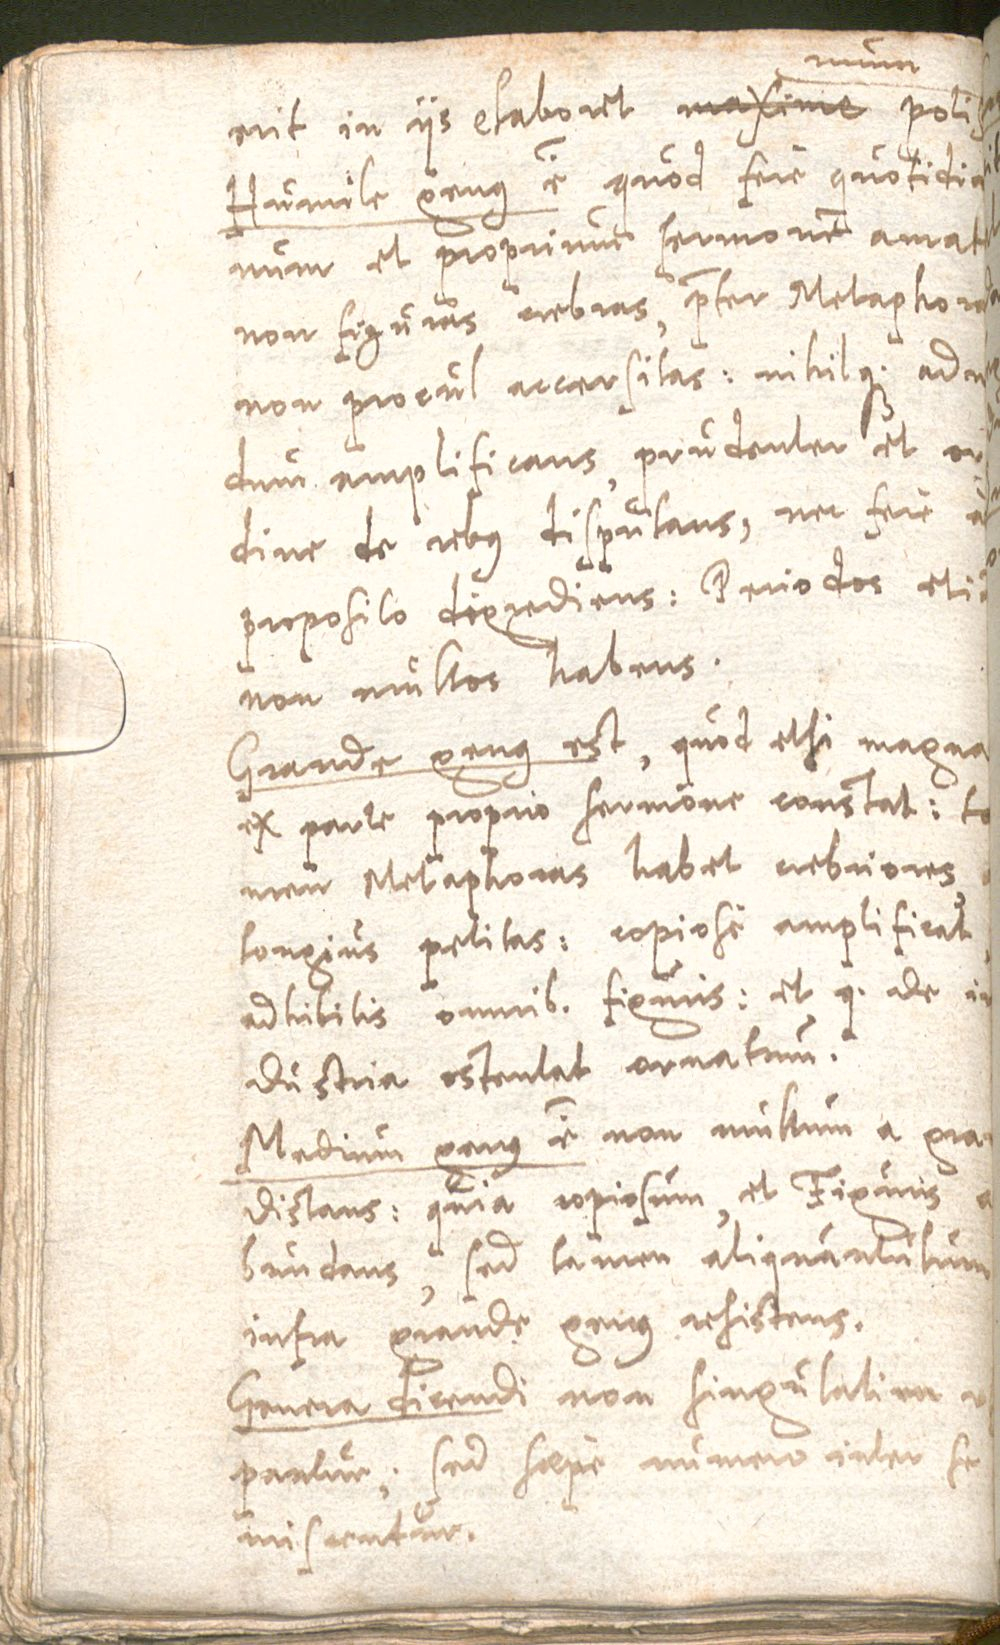 mum
erit in ijs elaboret maxime polis
Humile geng ē quod ferè quotidia
num et proprium sermonē amat
non figuras crebras, p̄ter Metaphora
non procul accersitas: nihilq. adm
dum amplificans, prudenter et or
dine de rebg disputans, nec ferè à
proposito digrediens: Periodos etiā
non multos habens.
Grande geng est, quod etsi magna
ex parte proprio sermone constat: ta
men Metaphoras habet crebriores,
longius petitas: copiosè amplificat,
adhibitis omnib. figuris: et q. de in
dustria ostentat ornatum.
Medium geng ē non multum a gran
distans: quia copiosum, et Figuris a
bundans, sed tamen aliquantulum
infra grande geng resistens.
Genera dicendi non singulatim
pantur, sed sæpè numero inter se
miscentur.